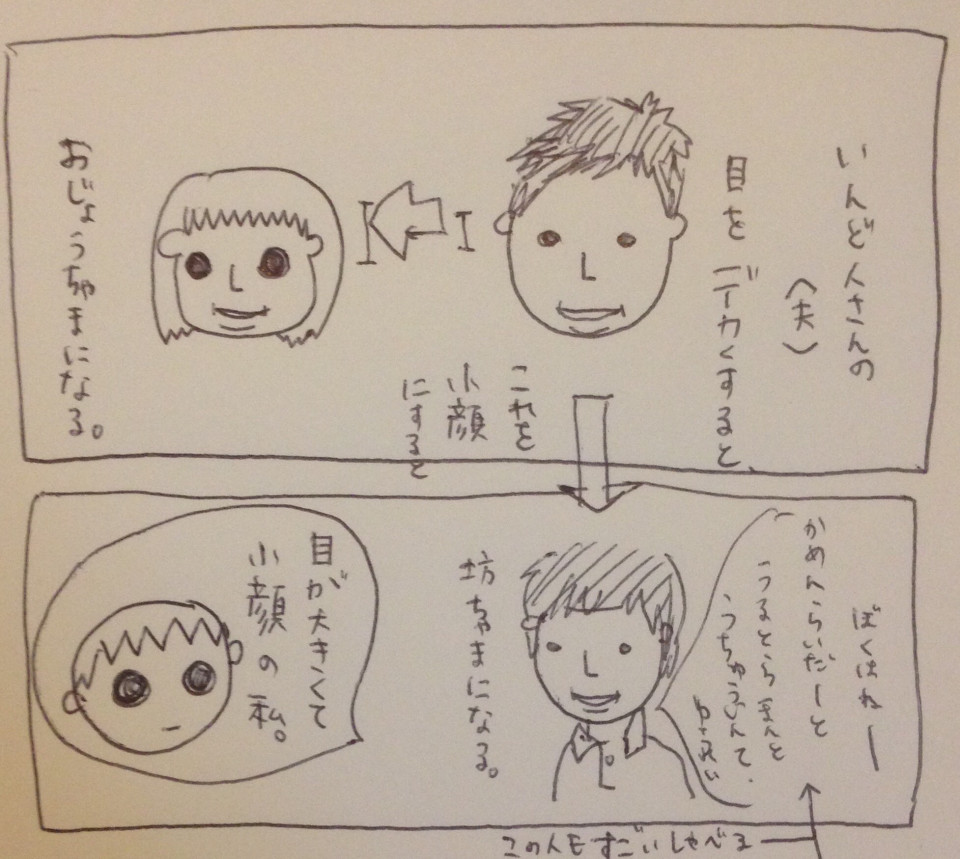 いんど人さんの
(夫)
目をデーカくすると
おじょうちゃまになる。
これを
小顔
にすると
ぼくはねー
かめんらいだーと
うるとらまんと
坊ちゃまになる。
目が大きくて
小顔の私。
この人もすごいしゃべる